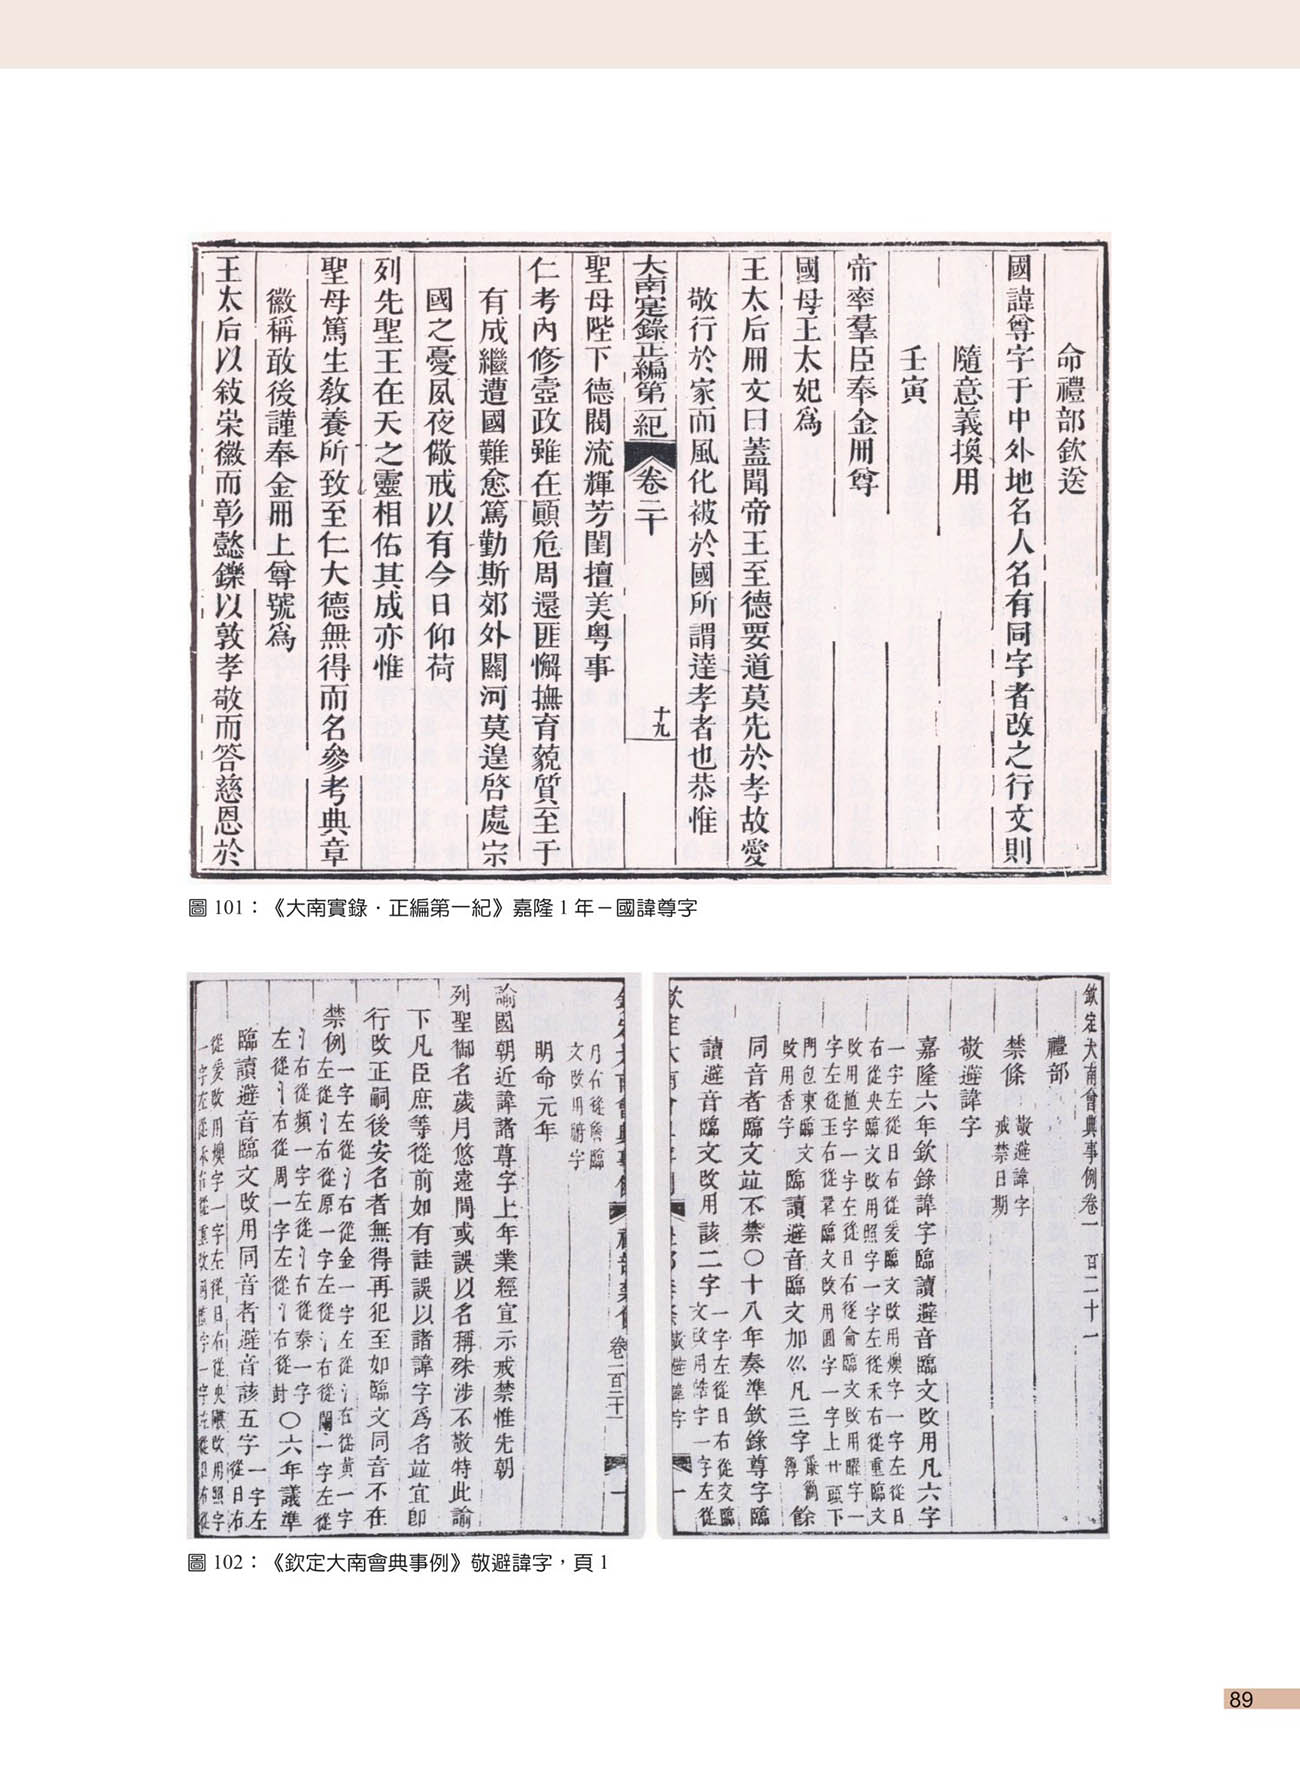 命禮部欽送
國諱尊字于中外地名人名有同字者改之行文則
隨意義換用
壬寅
帝率羣臣奉金冊尊
國母王太妃爲
王太后冊文曰蓋聞帝王至德要道莫先於孝故愛
敬行於家而風化被於國所謂達孝者也恭惟
大南寔錄正編第一紀 卷二十 十九
聖母陛下德閥流輝芳閨擅美粤事
仁考內修壼政雖在顚危周還匪懈撫育藐質至于
有成繼遭國難愈篤勤斯郊外關河莫遑啓處宗
國之憂夙夜儆戒以有今日仰荷
列先聖王在天之靈相佑其成亦惟
聖母篤生敎養所致至仁大德無得而名參考典章
徽稱敢後謹奉金冊上尊號爲
王太后以敍崇徽而彰懿鑠以敦孝敬而答慈恩於
圖 101：《大南實錄．正編第一紀》嘉隆 1 年－國諱尊字
欽定大南會典事例卷一百二十一
禮部
禁條 敬避諱字 戒禁日期
敬避諱字
嘉隆六年欽錄諱字臨讀避音臨文改用凡六字
一字左從日右從爰臨文改用燠字一字左從日
右從央臨文改用照字一字左從禾右從重臨文
改用植字一字左從日右從侖臨文改用曜字一
字左從玉右從鞏臨文改用圓字一字上艹頭下
門包東臨文
改用香字
臨讀避音臨文加巛凡三字
餘
同音者臨文竝不禁〇十八年奏準欽錄尊字臨
讀避音臨文改用該二字
一字左從日右從交臨
文改用皓字一字左從
月右從詹臨
文改用腑字
明命元年
諭國朝近諱諸尊字上年業經宣示戒禁惟先朝
列聖御名歲月悠遠間或誤以名稱殊涉不敬特此諭
下凡臣庶等從前如有詿誤以諸諱字爲名竝宜卽
行改正嗣後安名者無得再犯至如臨文同音不在
禁例
一字左從氵右從金一字左從氵右從黄一字
左從氵右從原一字左從氵右從闊一字左從
氵右從頻一字左從氵右從秦一字
左從氵右從周一字左從氵右從封
〇六年議準
臨讀避音臨文改用同音者避音該五字
一字左
從日右
從爰改用燠字一字左從日右從央臨改用照字
圖 102：《欽定大南會典事例》敬避諱字，頁 1
89